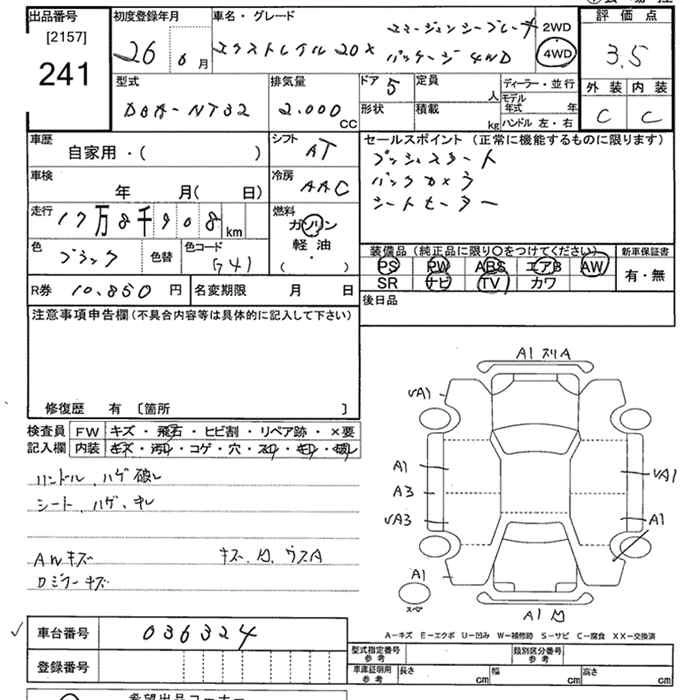 出品番号
[2157]
241
初度登録年月
26 6月
車名・グレード
エマージェンシーブレーキ
エクストレイル 20X パッケージ 4WD
2WD
4WD
評価点
3.5
外装 内装
C C
型式
DBA-NT32
排気量
2.000
CC
ドア 5
形状
定員
人
積載
kg
ディーラー・並行
モデル年式 年
ハンドル 左・右
車歴
自家用・( )
シフト
AT
セールスポイント (正常に機能するものに限ります)
プッシュスタート
バックカメラ
シートヒーター
車検
年 月( 日)
冷房
AAC
走行
17万8千908 km
燃料
ガソリン
軽油
( ・ )
色
ブラック
色替
色コード
G41
装備品 (純正品に限り○をつけてください)
PS PW ABS エアB AW
SR ナビ TV カワ
新車保証書
有・無
R券 10.850円
名変期限 月 日
後日品
注意事項申告欄 (不具合内容等は具体的に記入して下さい)
修復歴 有 [箇所 ]
検査員記入欄
FW キズ・飛石・ヒビ割・リペア跡・×要
内装 キズ・汚れ・コゲ・穴・スレ・キレ・破れ
ハンドル、ハゲ破レ
シート、ハゲ、キレ
AWキズ
キズ、凹、ウスA
ロジフーキズ
A1スリA
VA1
A1
A3
VA3
A1
VA1
A1
A1凹
スペア
A-キズ E-エクボ U-凹み W-補修跡 S-サビ C-腐食 XX-交換済
車台番号
036324
登録番号
型式指定番号 参考
類別区分番号 参考
車庫証明用 参考
長さ cm
幅 cm
高さ cm
希望出品コーナー